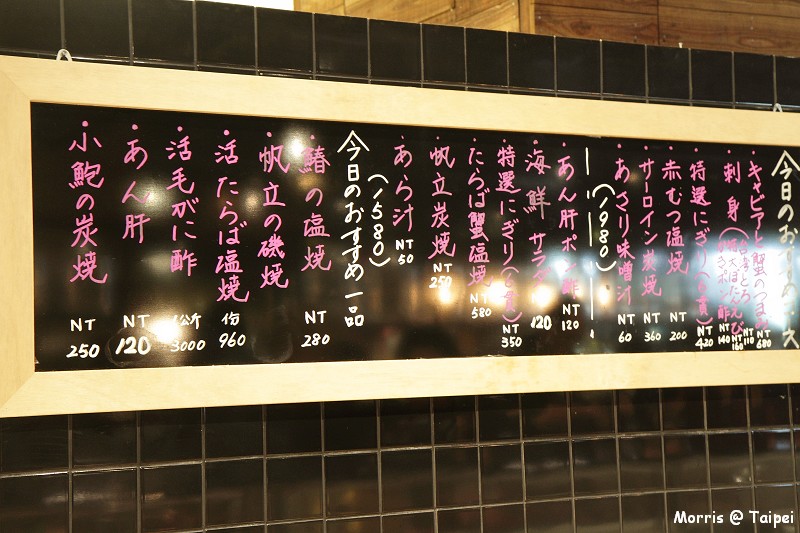 今日のおすすめ
・キャビアと蟹のつまみ NT 680
・刺身
NT 110
NT 160
140
・特選にぎり(6貫) NT 420
・赤むつ塩焼 NT 200
・サーロイン炭焼 NT 360
・あさり味噌汁 NT 60
(1980)
・あん肝ポン酢 NT 120
・海鮮サラダ 120
・特選にぎり(6貫) NT 350
・たらば蟹塩焼 NT 580
・帆立炭焼 NT 250
・あら汁 NT 50
(1580)
今日のおすすめ一品
・鰆の塩焼 NT 280
・帆立の磯焼
・活たらば塩焼 份 960
・活毛がに酢 1公斤 3000
・あん肝 NT 120
・小鮑の炭焼 NT 250
Morris @ Taipei